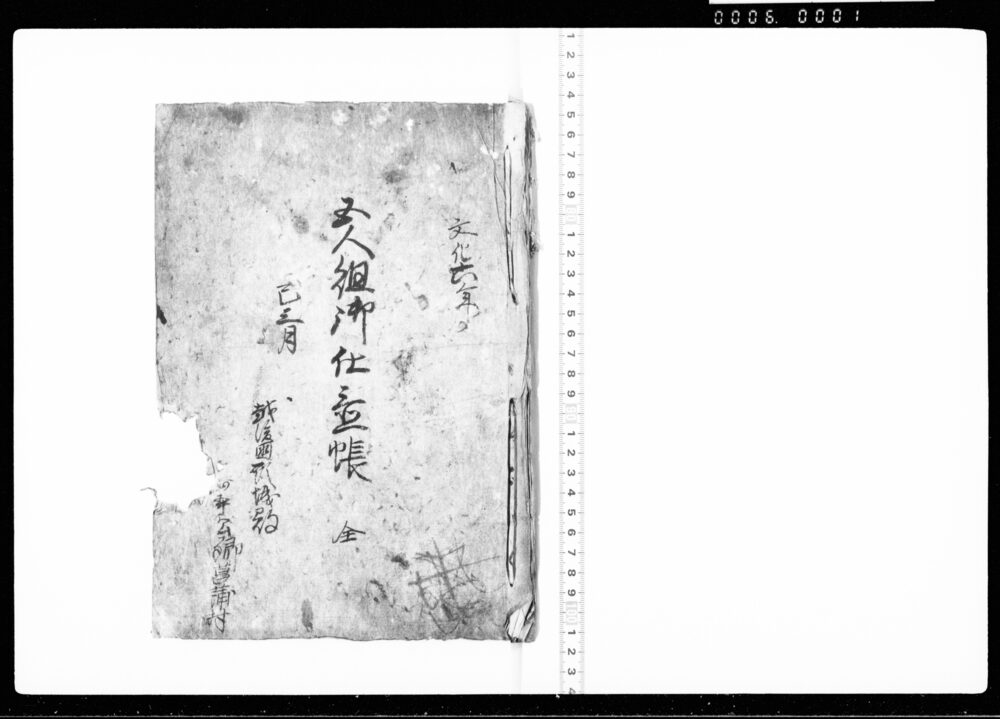 0006. 0001
文化六年
五人組御仕置帳 全
巳三月
越後國頸城郡
菖蒲村
1 2 3 4 5 6 7 8 9 10 1 2 3 4 5 6 7 8 9 10 1 2 3 4 5 6 7 8 9 10 1 2 3 4